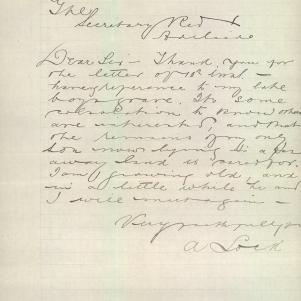 The
Secretary Red X
Adelaide
Dear Sir - Thank you for
the letter of 10th inst -
having reference to my late
boys grave. Its some
consolation to know others
are interested, and that
the remains of my only
son now lying in a far
away land is cared for.
I am growing old, and
in a little while he and
I will meet again -
Very respectfully yrs
A Lock